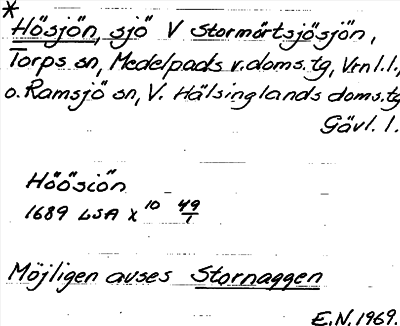 *
Hösjön, sjö V Stormörtsjösjön,
Torps sn, Medelpads v. doms. tg, Vrnl. l.,
o. Ramsjö sn, V. Hälsinglands doms. tg
Gävl. l.
Höösiön
1689 LSA X 10 49/1
Möjligen avses Stornaggen
E.N. 1969.